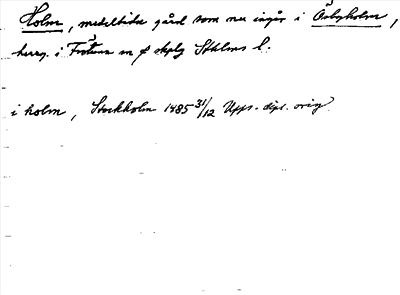 Holm, medeltida gård som nu ingår i Össbyholm,
herrg. i Frötuna sn o skplg Sthlms l.
i holm, Stockholm 1485 31/12 Upps. dipl. orig.